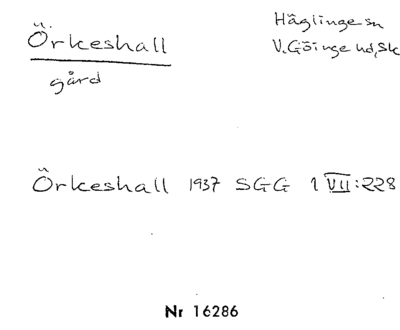 Örkeshall
gård
Häglinge sn
V. Göinge hd, Sk
Örkeshall 1937 SGG 1 VII:228
Nr 16286